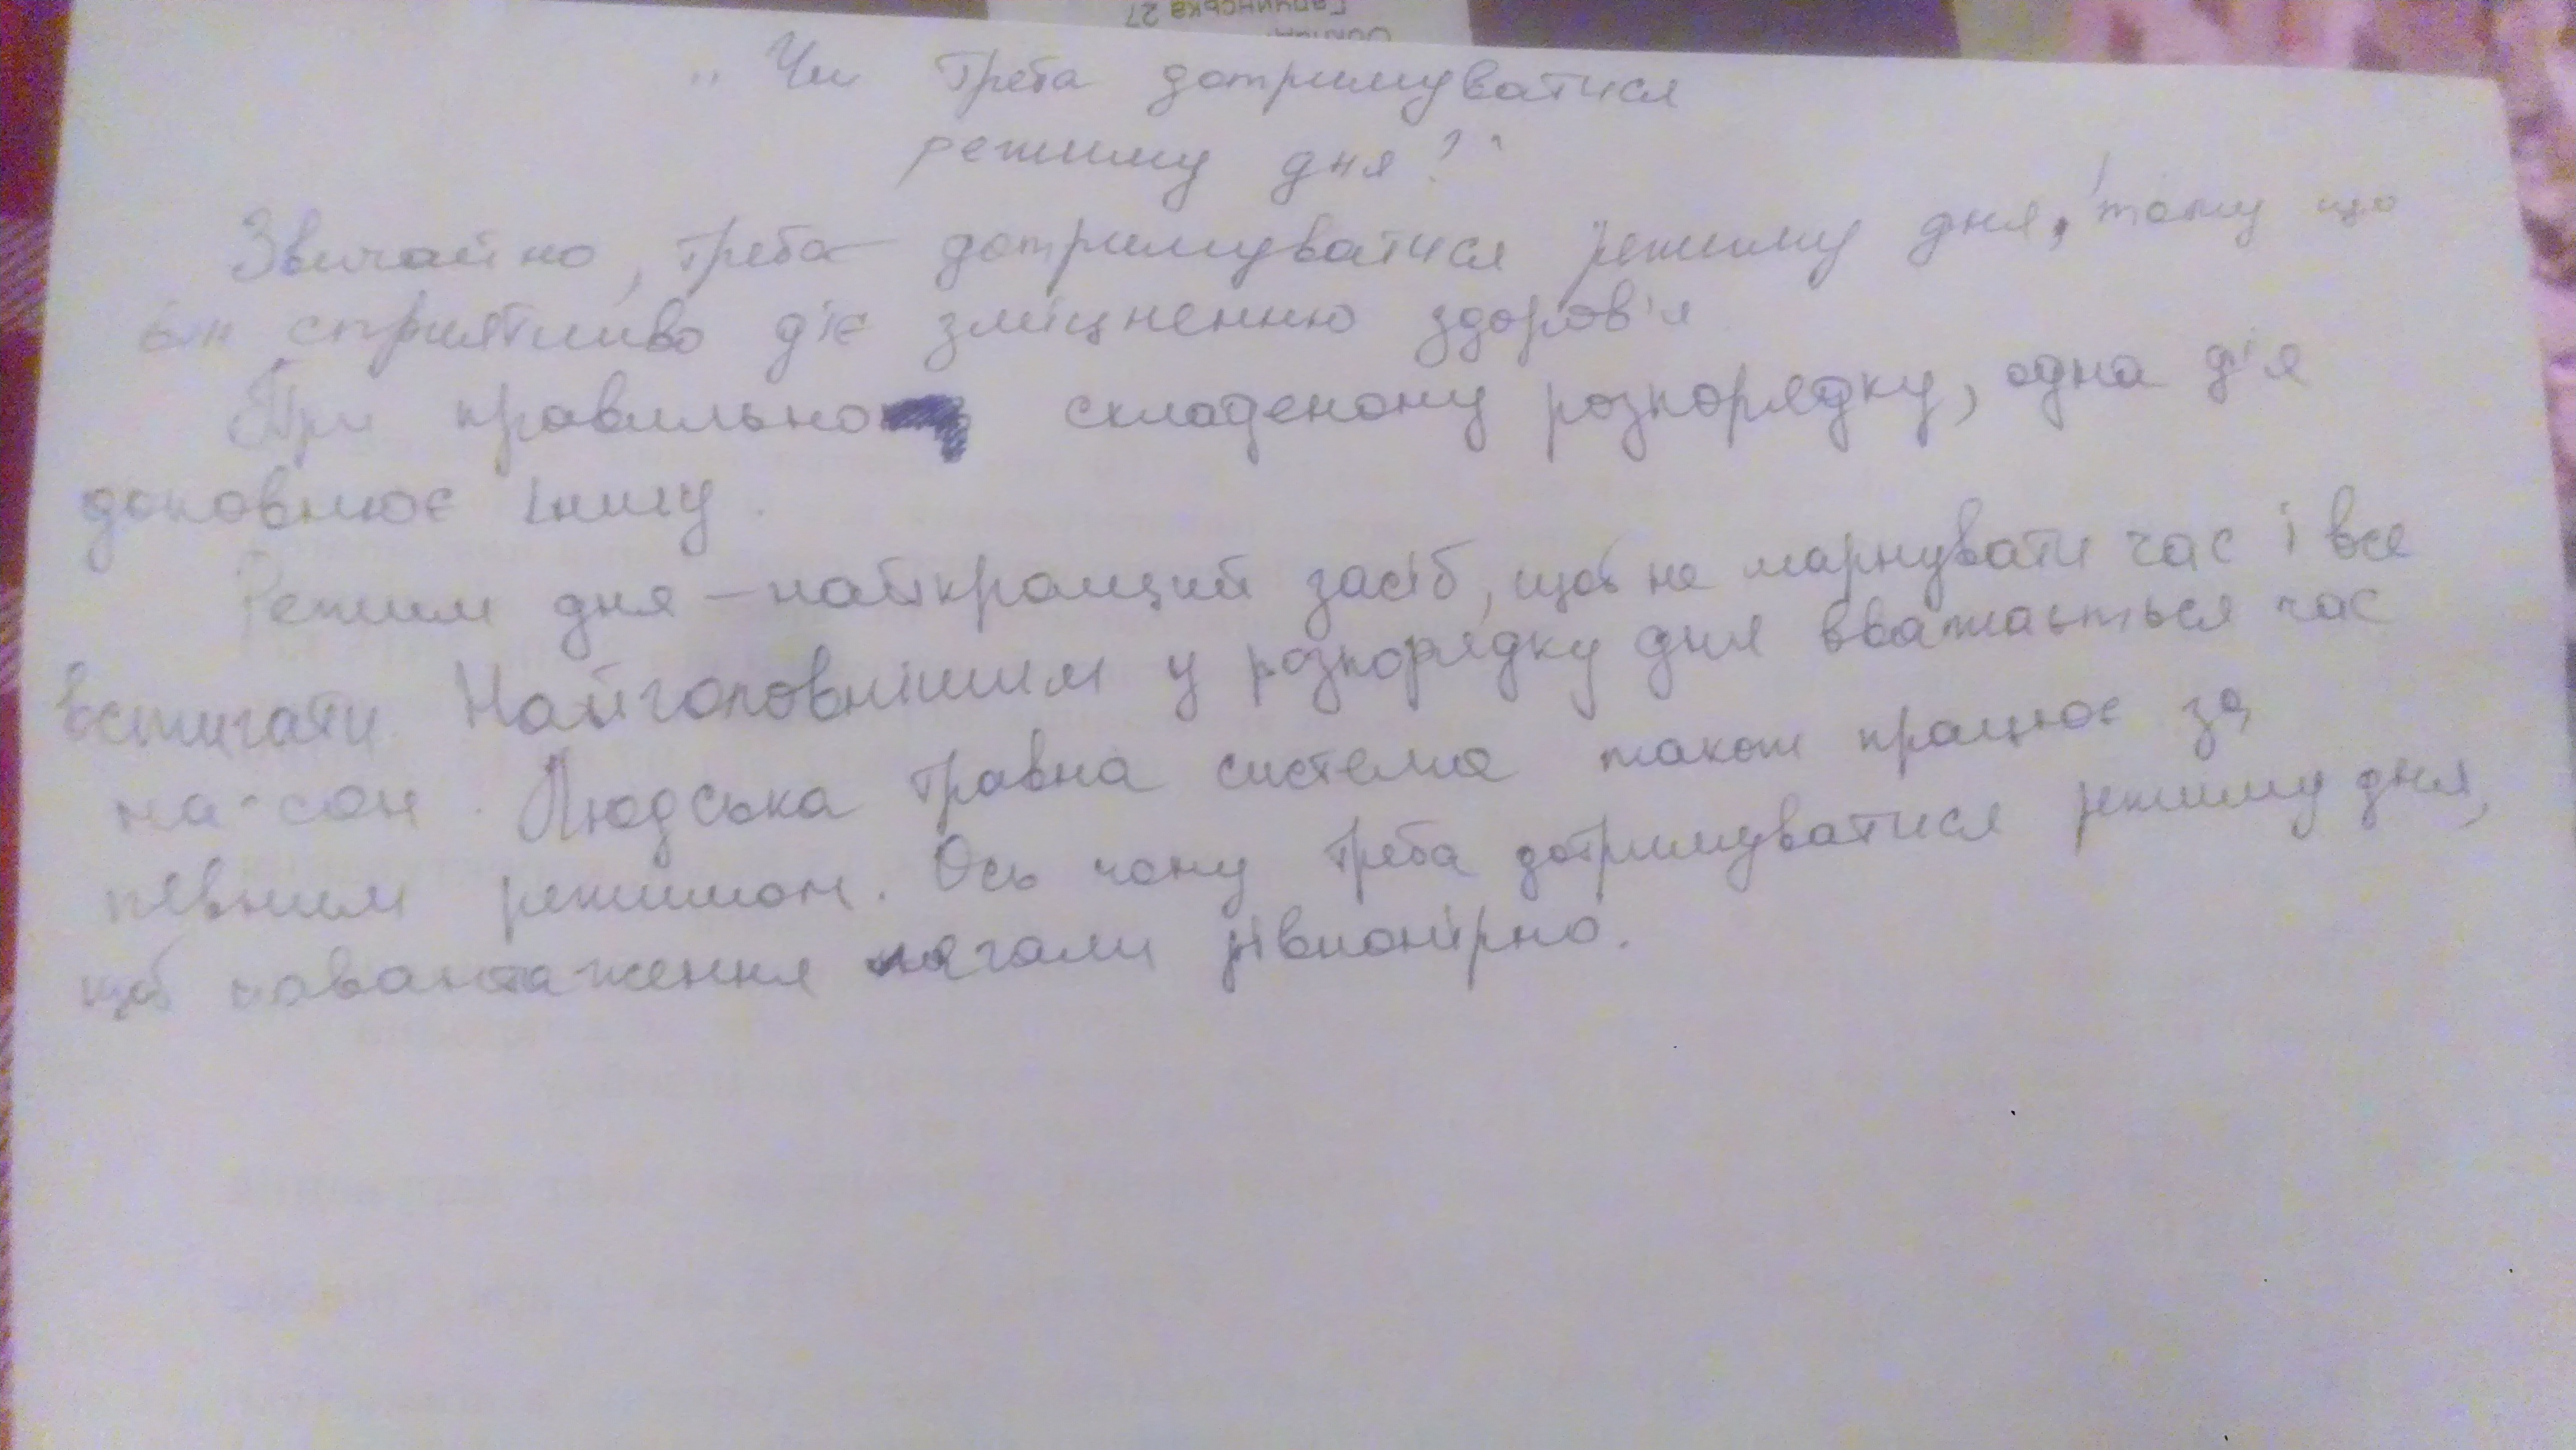 Гарчинська 27
„Чи треба дотримуватися
режиму дня?"
Звичайно, треба дотримуватися режиму дня, тому що
він сприятливо діє зміцненню здоров'я
При правильно складеному розпорядку, одна дія
доповнює іншу.
Режим дня – найкращий засіб, щоб не марнувати час і все
встигати. Найголовнішим у розпорядку дня вважається час
на сон. Людська травна система також працює за
певним режимом. Ось чому треба дотримуватися режиму дня,
щоб навантаження лягали рівномірно.